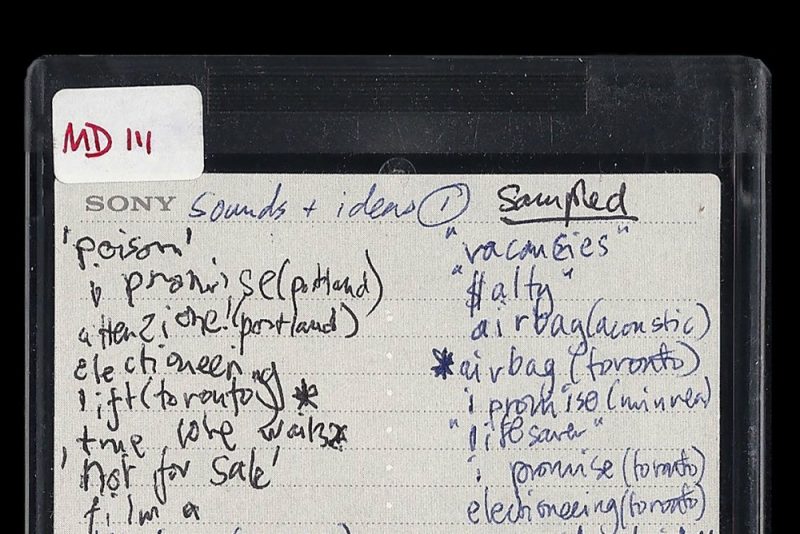 MD 111
SONY sounds + ideas ① Sampled
'poison'
i promise (portland)
attenzione! (portland)
electioneering
lift (toronto) *
true love waits
'not for sale'
film a
"vacancies"
"$alty"
airbag (acoustic)
*airbag (toronto)
i promise (minnea)
"lifesaver"
i promise (toronto)
electioneering (toronto)